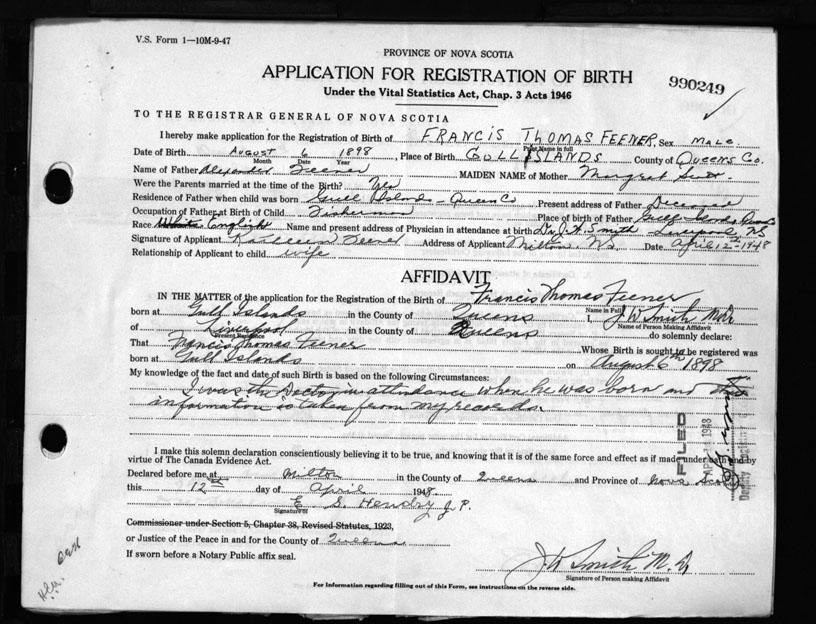 V.S. Form 1—10M-9-47
PROVINCE OF NOVA SCOTIA
APPLICATION FOR REGISTRATION OF BIRTH
990249
Under the Vital Statistics Act, Chap. 3 Acts 1946
TO THE REGISTRAR GENERAL OF NOVA SCOTIA
I hereby make application for the Registration of Birth of FRANCIS THOMAS FEENER, Sex MALE
Print Name in full
Date of Birth AUGUST 6 1898, Place of Birth GULL ISLANDS County of QUEENS CO.
Month Date Year
Name of Father Alexander Feener MAIDEN NAME of Mother Margret
Were the Parents married at the time of the Birth? Yes
Residence of Father when child was born Gull Islands - Queens Co Present address of Father Deceased
Occupation of Father at Birth of Child Fisherman Place of birth of Father Gull Islands Queens
Race White English Name and present address of Physician in attendance at birth Dr. J. W. Smith - Liverpool NS
Signature of Applicant Kathleen Feener Address of Applicant Milton N.S. Date April 12th 1948
Relationship of Applicant to child wife
AFFIDAVIT
IN THE MATTER of the application for the Registration of the Birth of Francis Thomas Feener
Name in Full
born at Gull Islands in the County of Queens I, J W Smith M.D.
Name of Person Making Affidavit
of Liverpool in the County of Queens do solemnly declare:
Present Residence
That Francis Thomas Feener Whose Birth is sought to be registered was
born at Gull Islands on August 6th 1898
My knowledge of the fact and date of such Birth is based on the following Circumstances:
I was the Doctor in attendance when he was born and this
information is taken from my records.
FILED
1948
I make this solemn declaration conscientiously believing it to be true, and knowing that it is of the same force and effect as if made under oath and by
virtue of The Canada Evidence Act.
Declared before me at Milton in the County of Queens and Province of Nova Scotia
this 12th day of April 1948.
E. S. Hendry J.P.
Signature of
Commissioner under Section 5, Chapter 38, Revised Statutes, 1923,
or Justice of the Peace in and for the County of Queens
If sworn before a Notary Public affix seal.
J W Smith M.D.
Signature of Person making Affidavit
For Information regarding filling out of this Form, see instructions on the reverse side.